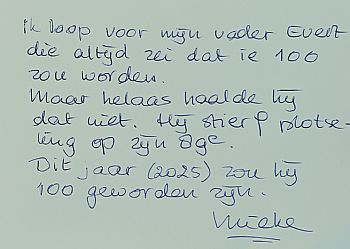 Ik loop voor mijn vader Evert
die altijd zei dat ie 100
zou worden.
Maar helaas haalde hij
dat niet. Hij stierf plotse-
ling op zijn 89e.
Dit jaar (2025) zou hij
100 geworden zijn.
Mieke